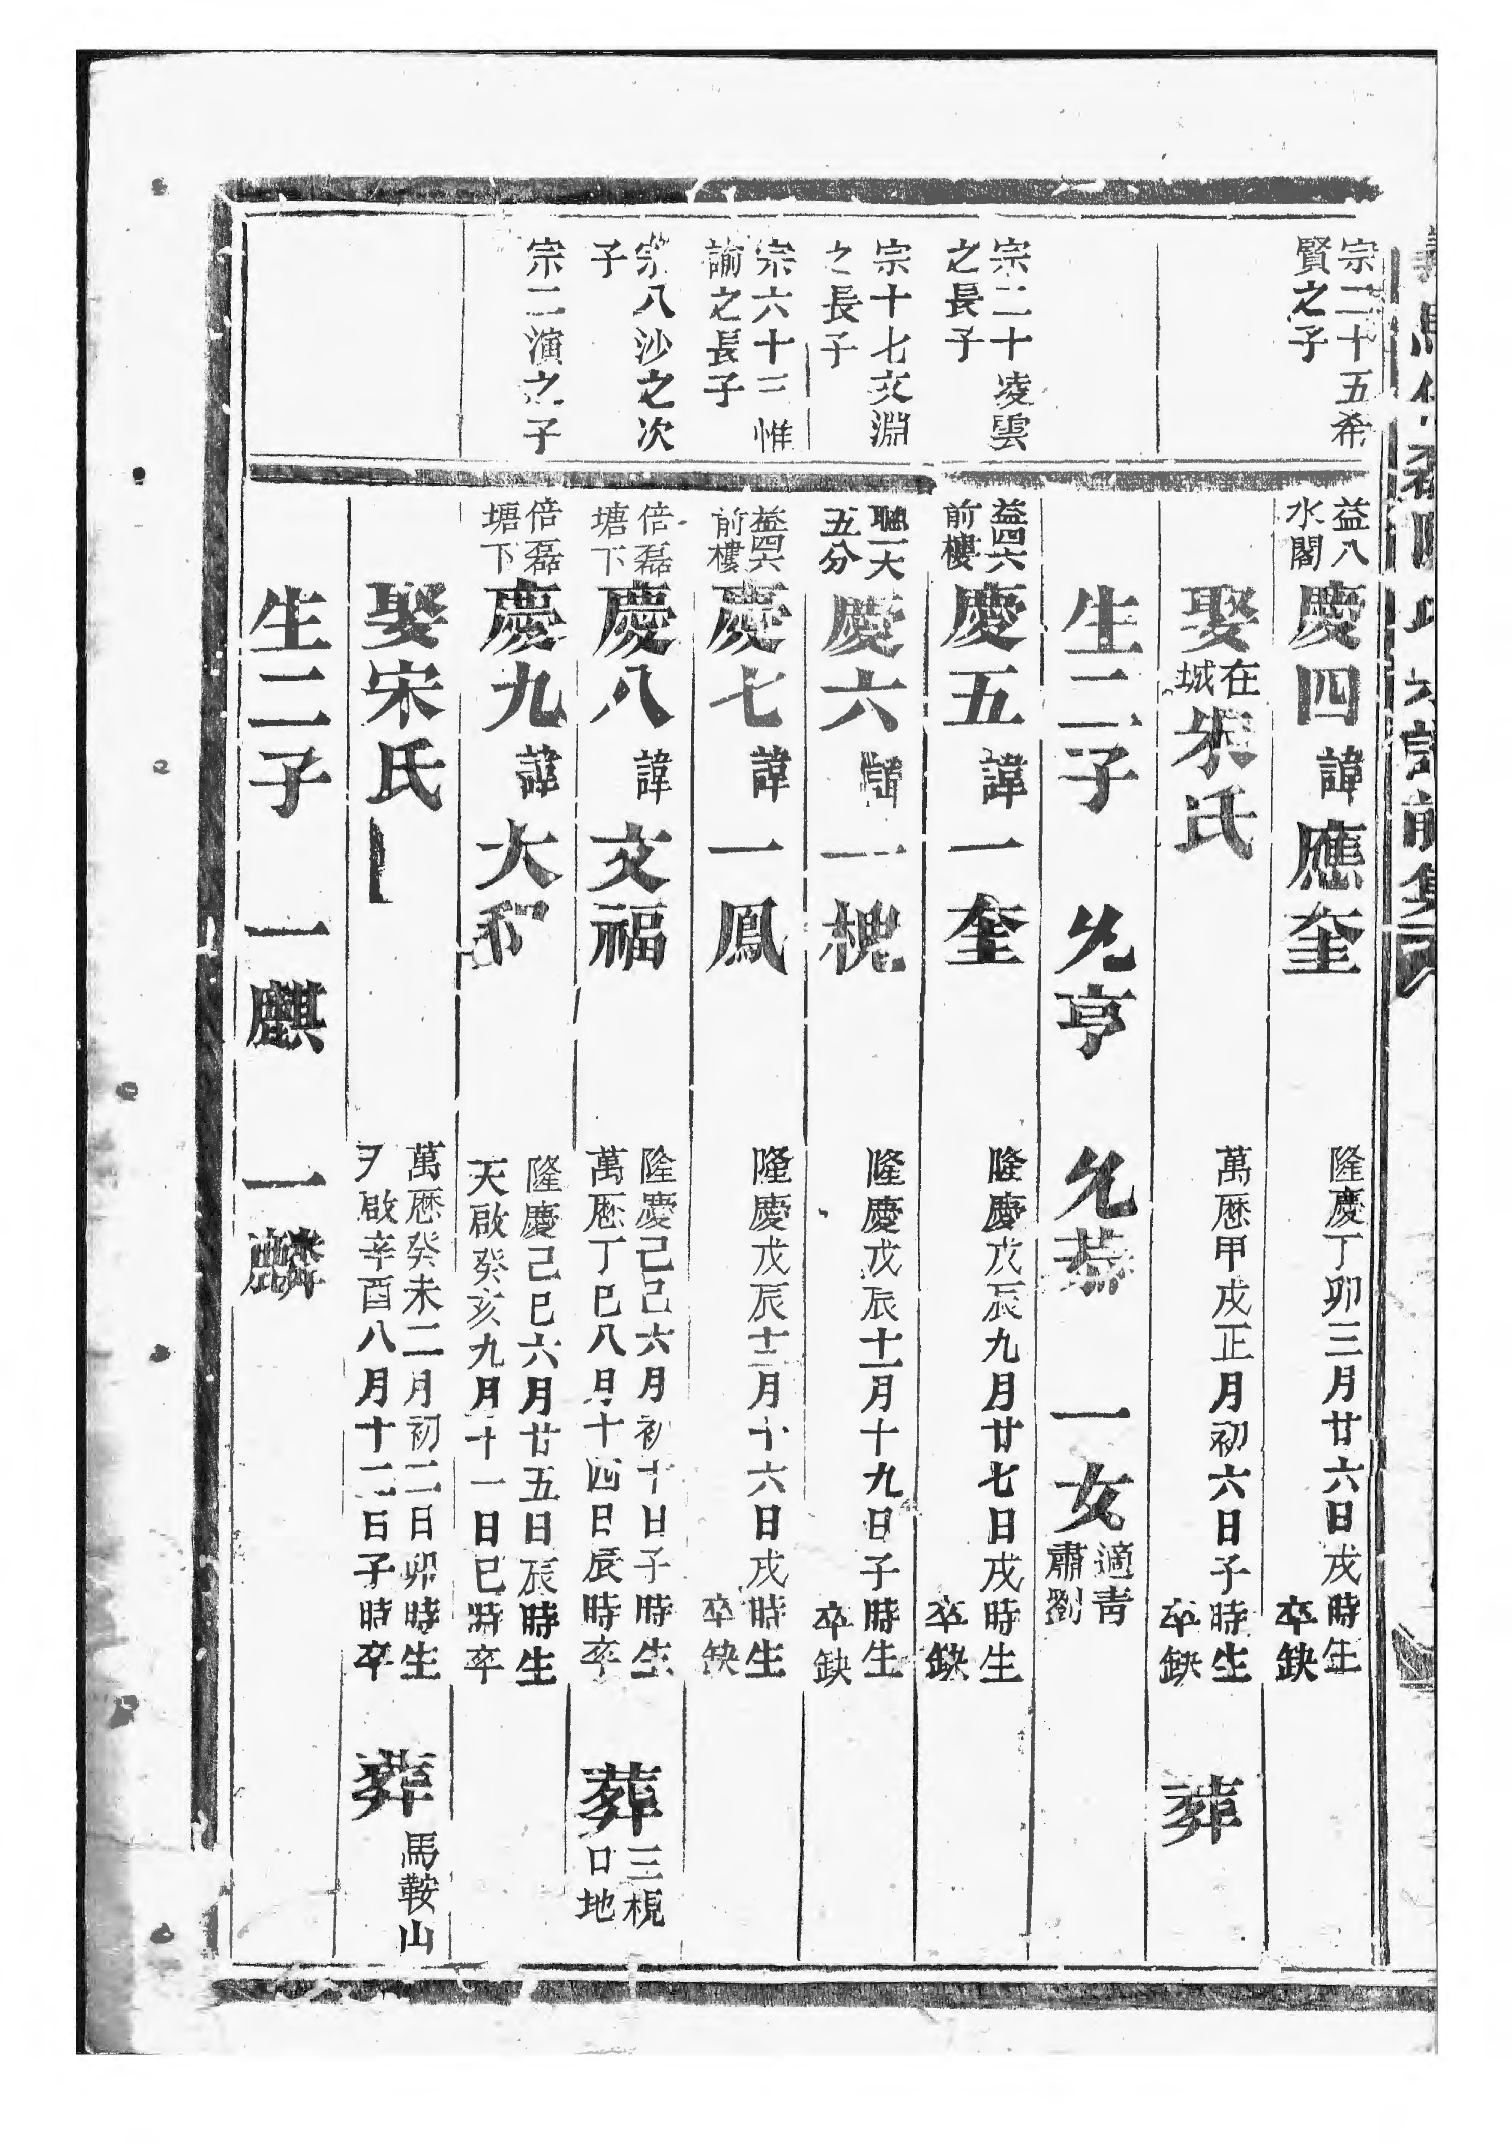 宗二十五希
賢之子
益八
水閣
慶四 諱 應奎
隆慶丁卯三月廿六日戌時生
卒缺
娶在城朱氏
萬厯甲戌正月初六日子時生
卒缺
葬
生二子 允亨 允恭 一女適青肅劉
宗二十凌雲
之長子
益四六
前樓
慶五 諱 一奎
隆慶戊辰九月廿七日戌時生
卒缺
宗十七文淵
之長子
聰一大
五分
慶六 諱 一槐
隆慶戊辰十一月十九日子時生
卒缺
宗六十三惟
諭之長子
益四六
前樓
慶七 諱 一鳳
隆慶戊辰十二月十六日戌時生
卒缺
宗八沙之次
子
倍磊
塘下
慶八 諱 文福
隆慶己巳六月初十日子時生
萬厯丁巳八月十四日辰時卒
葬三梘口地
宗二演之子
倍磊
塘下
慶九 諱 大和
隆慶己巳六月廿五日辰時生
天啟癸亥九月十一日巳時卒
娶宋氏
萬厯癸未二月初二日卯時生
天啟辛酉八月十二日子時卒
葬馬鞍山
生二子 一麒 一麟